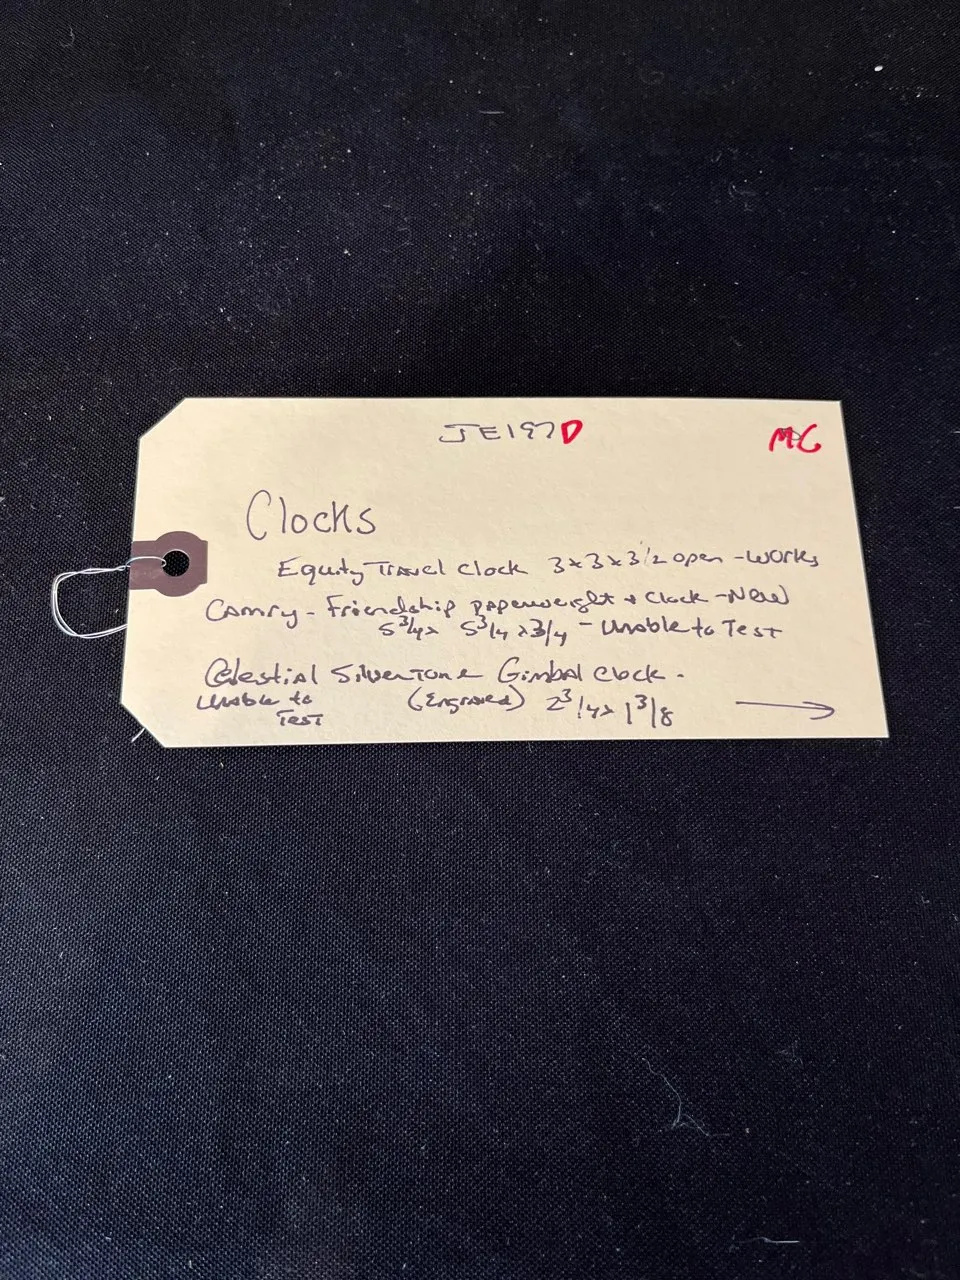 JE197D
MG
Clocks
Equity Travel Clock 3x3x3 1/2 open - Works
Camry - Friendship paperweight + Clock - New
5 3/4 x 5 3/4 x 3/4 - Unable to Test
Celestial Silvertone Gimbal Clock -
Unable to (Engraved) 2 3/4 x 1 3/8 →
Test